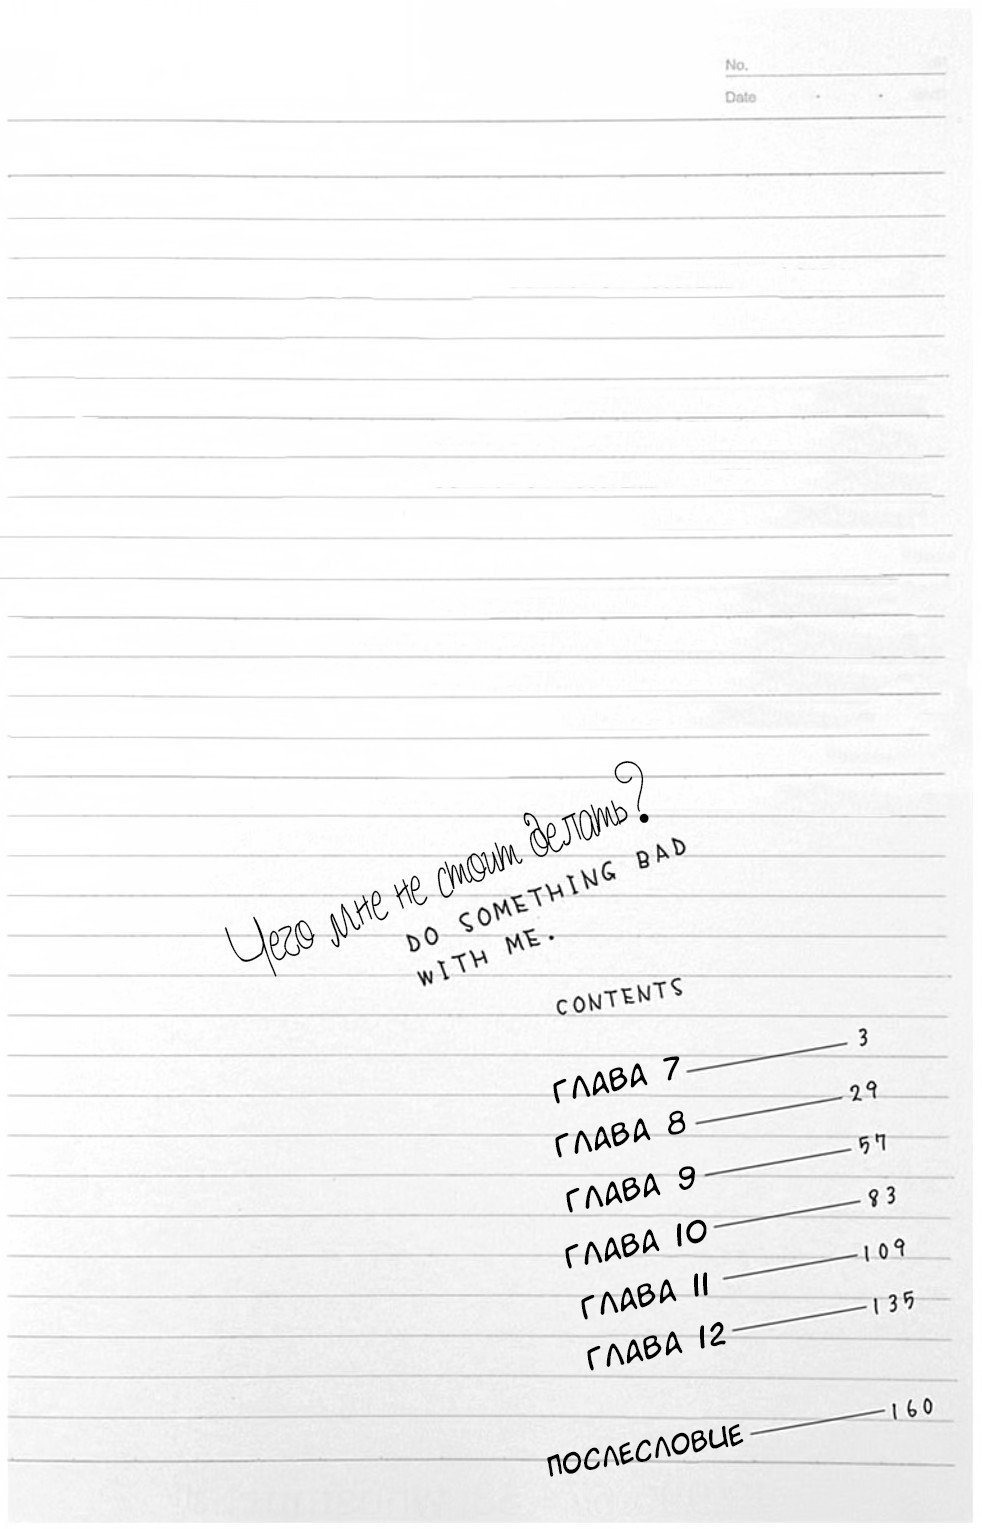 No.
Date
Чего мне не стоит делать?
DO SOMETHING BAD
WITH ME.
CONTENTS
ГЛАВА 7 3
ГЛАВА 8 29
ГЛАВА 9 57
ГЛАВА 10 83
ГЛАВА 11 109
ГЛАВА 12 135
ПОСЛЕСЛОВИЕ 160